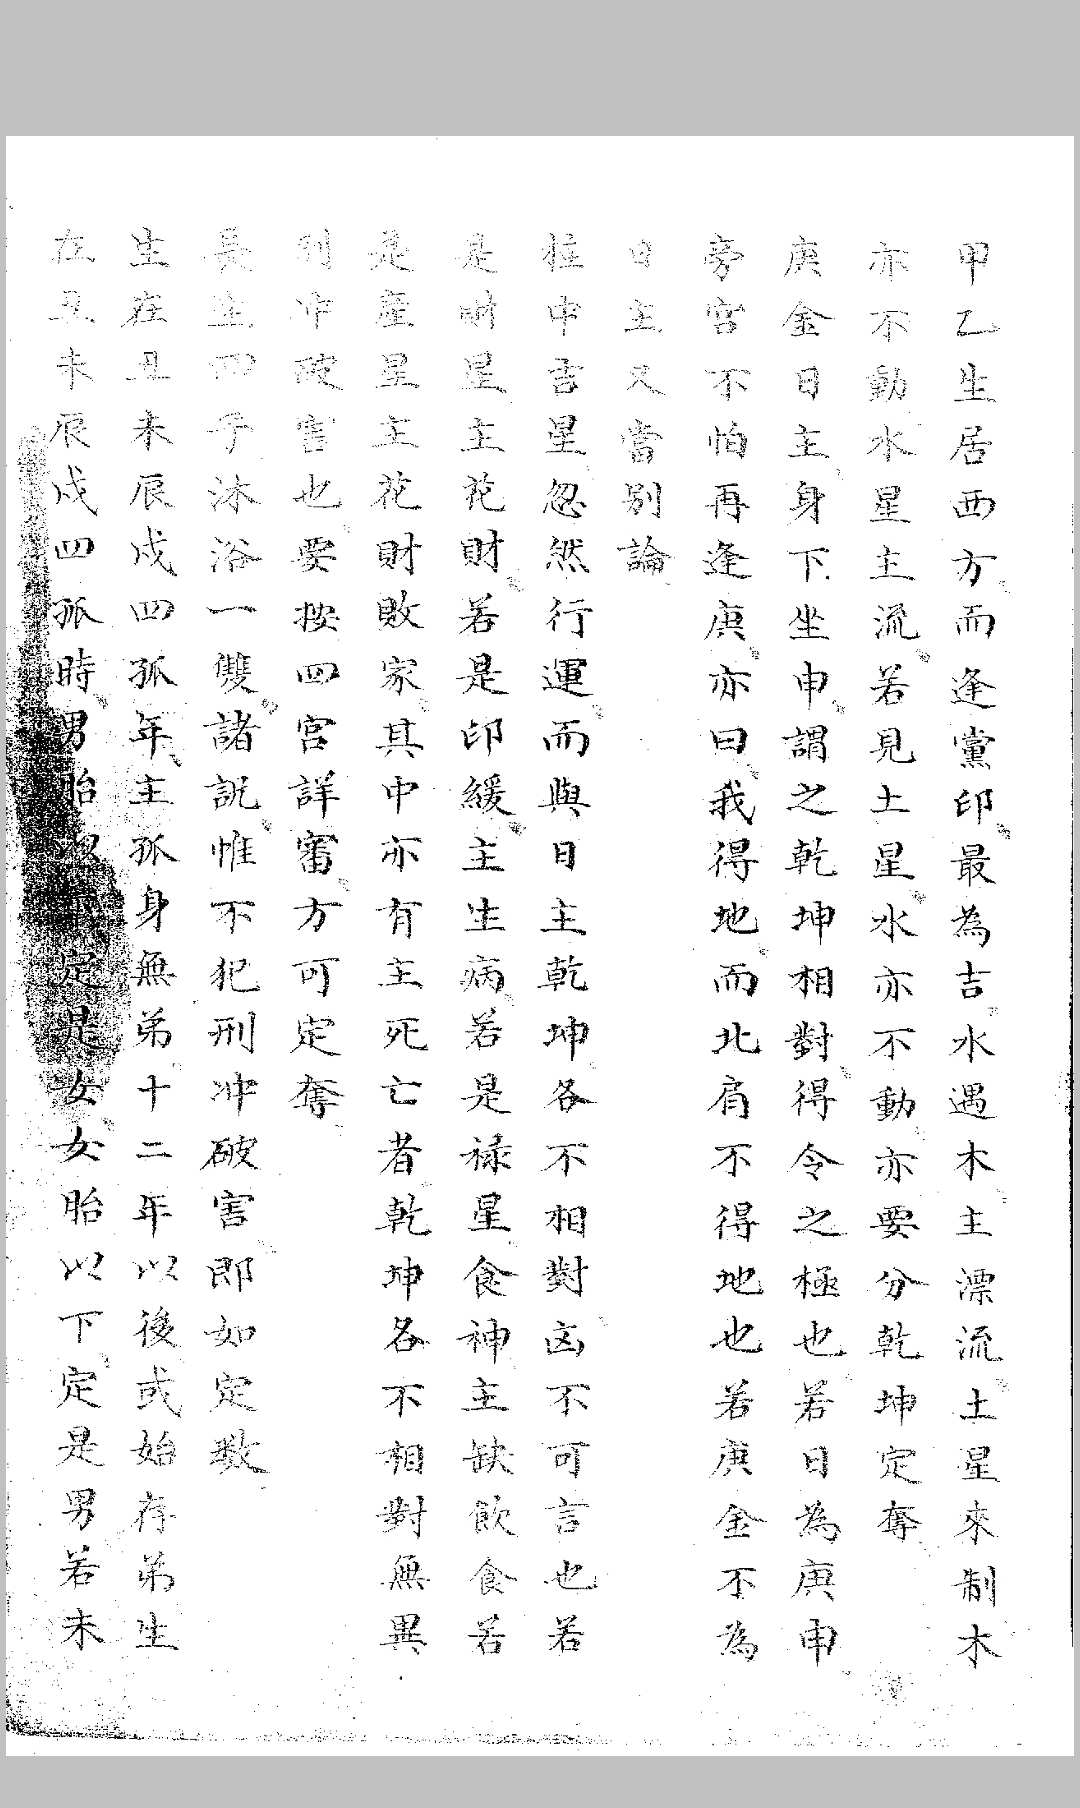 甲乙生居西方而逢黨印最為吉水遇木主漂流土星來制木
亦不動水星主流若見土星水亦不動亦要分乾坤定奪
庚金日主身下坐申謂之乾坤相對得令之極也若日為庚申
旁宮不怕再逢庚亦曰我得地而北肩不得地也若庚金不為
日主又當別論
柱中吉星忽然行運而與日主乾坤各不相對凶不可言也若
是財星主花財若是印緩主生病若是祿星食神主缺飲食若
是產星主花財敗家其中亦有主死亡者乾坤各不相對無異
刑冲破害也要按四宮詳審方可定奪
長生四子沐浴一雙諸説惟不犯刑冲破害即如定数
生在丑未辰戌四孤年主孤身無弟十二年以後或始存弟生
在丑未辰戌四孤時男胎定是女女胎以下定是男若未